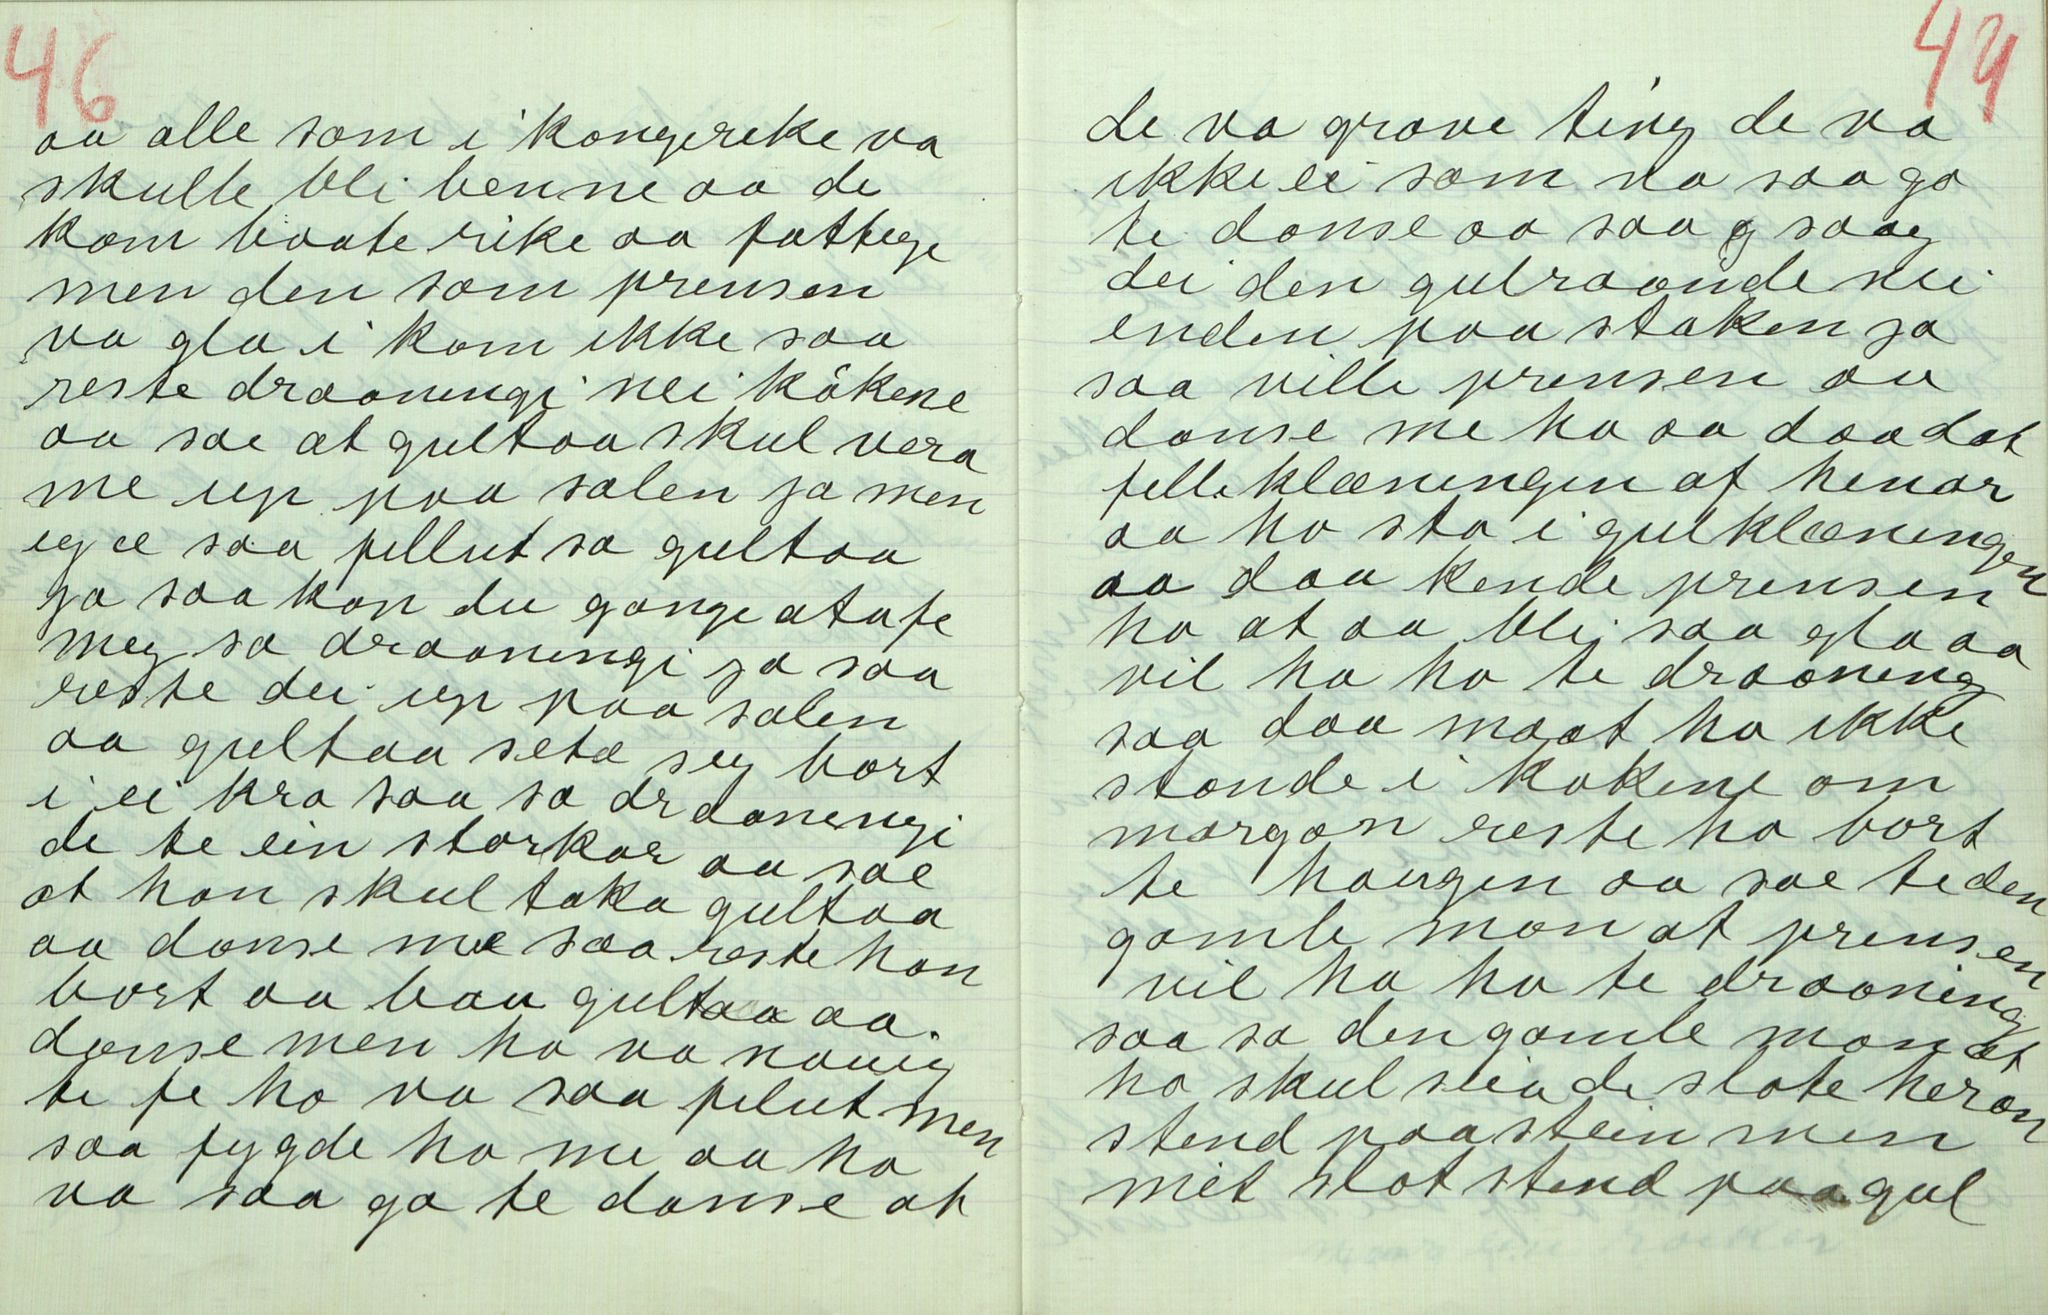 46
aa alle som i kongereke va
skulle bli benne aa de
kom baate rike aa fattege
men den som prensen
va gla i kom ikke saa
reste draaningi nei kökene
aa sae at gultaa skul vera
me up paa salen ja men
eg æ saa fillut sa gultaa
ja saa kan du gange atafe
meg sa draaningi ja saa
reste dei up paa salen
aa gultaa seta seg bort
i ei kra saa sa draaningi
de te ein storkar aa sae
at han skul taka gultaa
aa danse me saa reste han
bort aa bau gultaa aa.
danse men ho va nauig
te fe ho va saa felut men
saa fygde ho me aa ho
va saa go te danse at
47
de va grove ting de va
ikke ei som va saa go
te danse aa saa g saag
dei den gulraande nei
enden paa staken ja
saa ville prensen aa
danse me ho aa daa dat
felleklæningen af henar
aa ho sto i gulklæningen
aa daa kende prensen
ho at aa blei saa gla aa
vil ha ho te draaning
saa daa maat ho ikke
stande i kokene om
morgon reste ho bort
te haugen aa sae te den
gamle man at prensen
vil ha ho te draaning
saa sa den gamle man at
ho skul seia de slote heran
stend paa stein men
mit slot stend paa gul